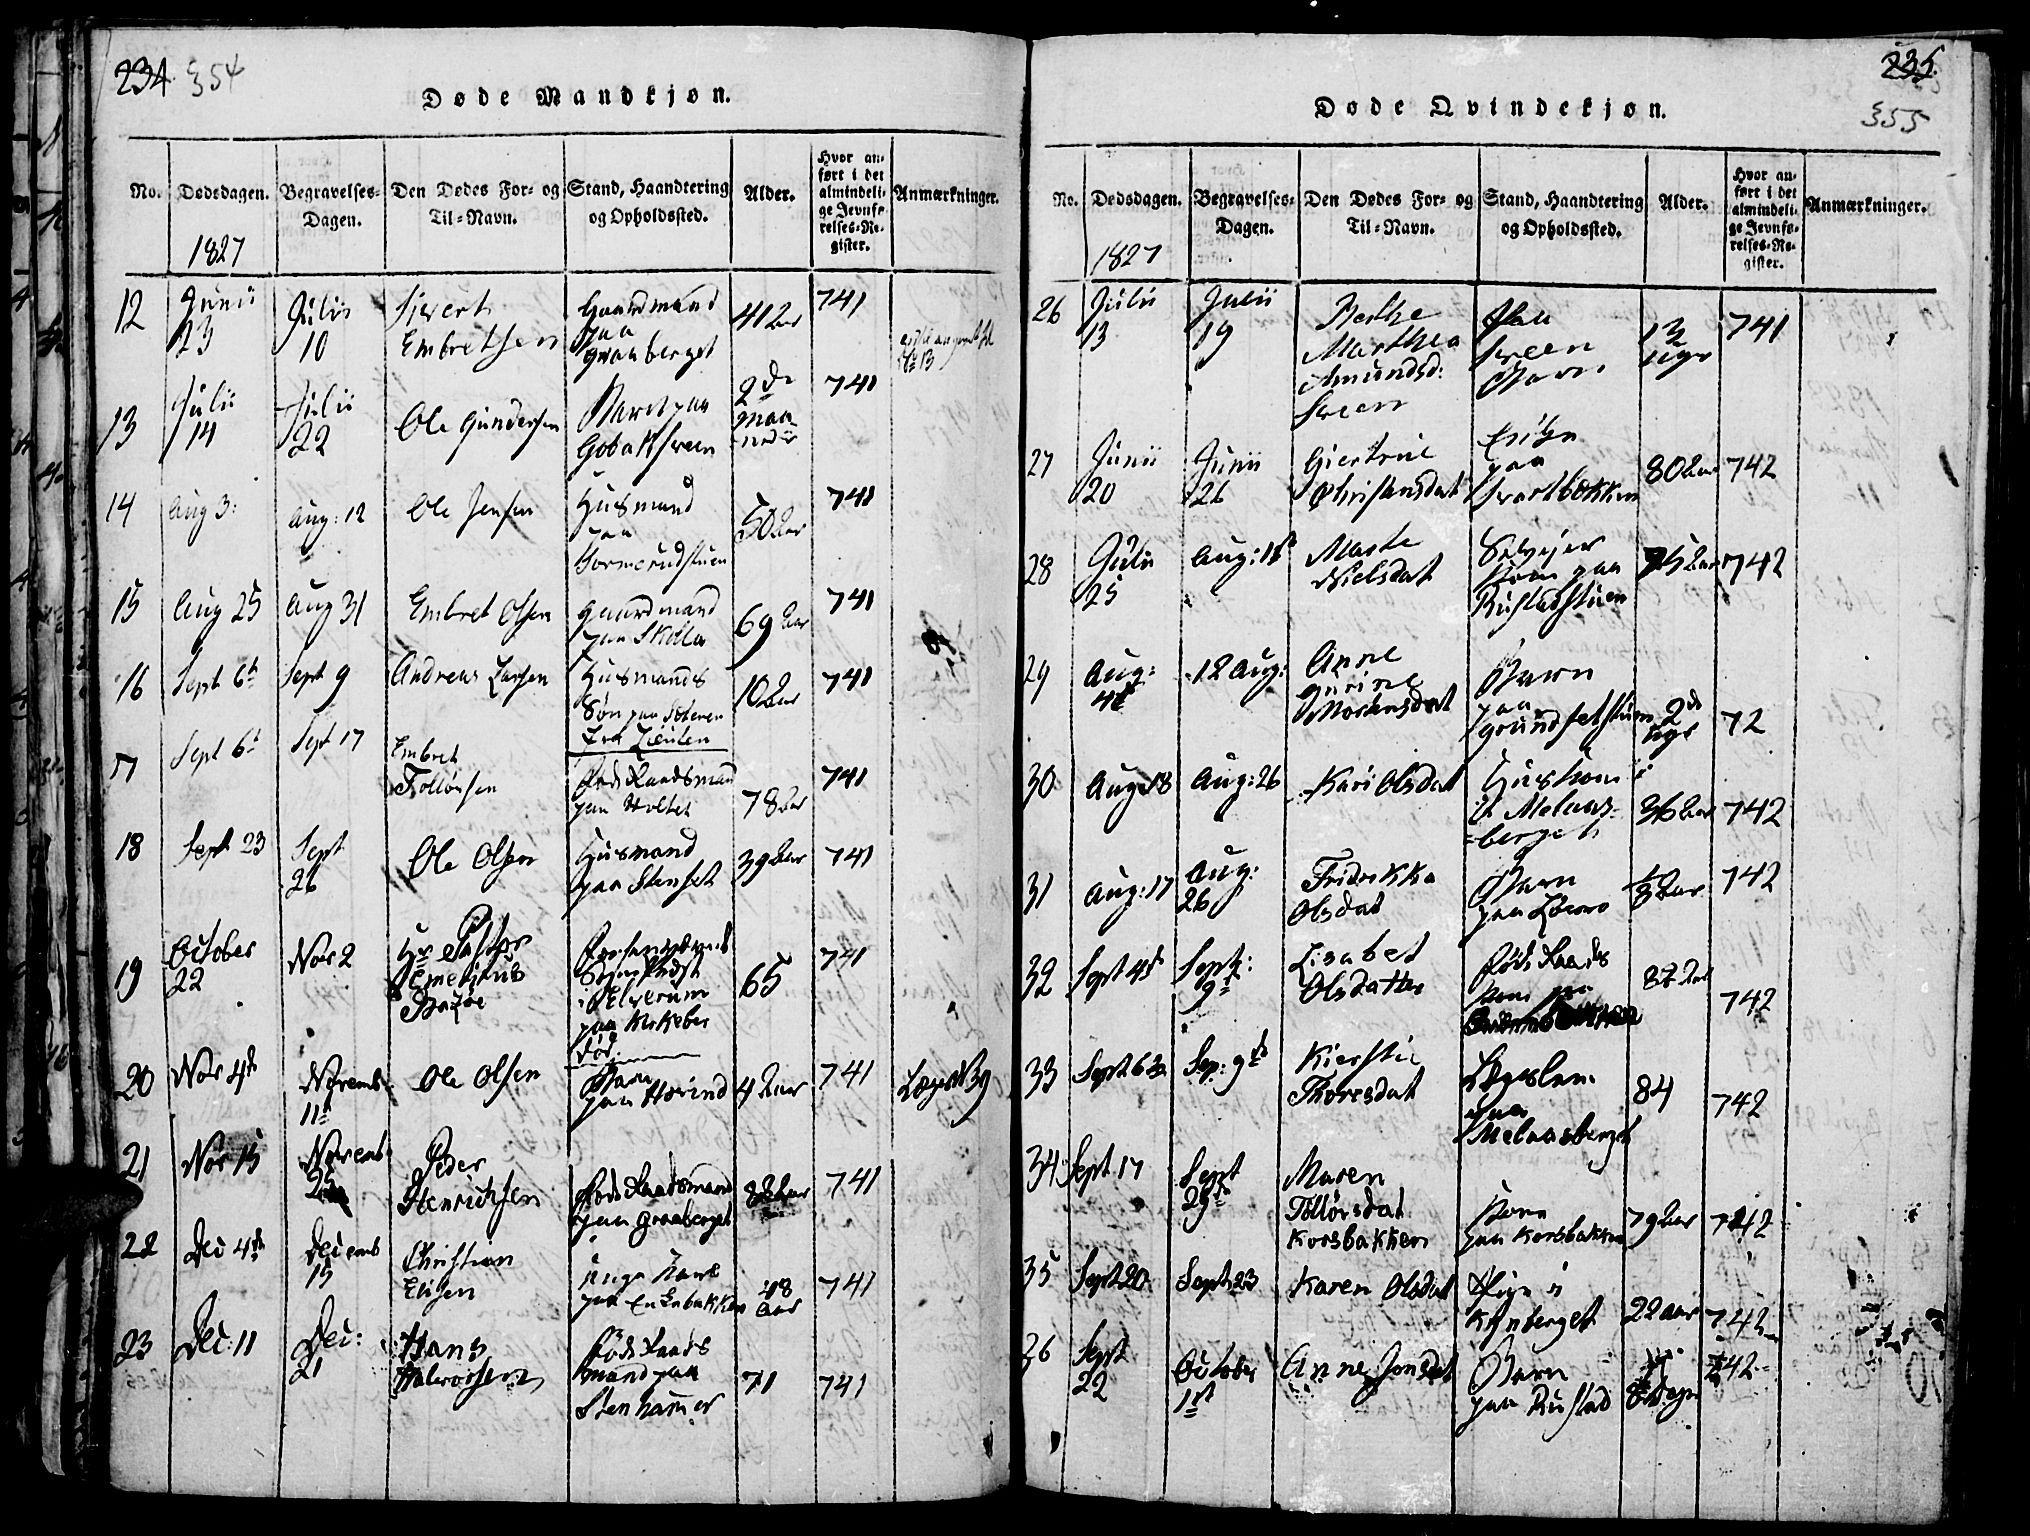 234. 354
Døde Mandkjøn.
No.
Dødsdagen.
1827
Begravelses-
Dagen.
Den Dødes For- og
Til-Navn.
Stand, Haandtering
og Opholdssted.
Alder.
Hvor an-
ført i det
almindeli-
ge Jevnfø-
relses-Re-
gister.
Anmærkninger.
12
Junii
23
Julii
10
Sivert
Embretsen
Gaardmand
paa
Graaberget
41 Aar
741
13
Julii
14
Julii
22
Ole Gundersen
Barn paa
Gobaksveen
2de
maa-
neder
741
14
Aug 3:
Aug: 12
Ole Jensen
Husmand
paa
Sormerudstuen
50 Aar
741
15
Aug 25
Aug 31
Embret Olsen
Gaardmand
paa Skolla
69 Aar
741
16
Sept 6te
Sept 9
Andreas Larsen
Husmands
Søn paa
10 Aar
741
17
Sept 6te
Sept 17
Embret
Tollørsen
Føds Raadsmand
paa Holtet
78 Aar
741
18
Sept 23
Sept
26
Ole Olsen
Husmand
paa Stenset
39 Aar
741
19
October
22
Nov 2
Hr Pastor
Emeritus
i Elverum
paa Kirkeber
65
741
20
Nov 4de
Novemb
11te
Ole Olsen
Barn
paa Horind
4 Aar
741
21
Nov 15
Novemb
25
Peder
Henrichsen
Føds Raadsmand
paa Graaberget
741
22
Dec 4de
Decemb
15
Christian
Elisen
unge Karl
48
Aar
741
23
Dec: 11
Dec:
21
Hans
Halvorsen
Føds Raads
mand paa
Stenhamer
71
741
235.
355
Døde Qvindekjøn.
No.
Dødsdagen.
1827
Begravelses-
Dagen.
Den Dødes For- og
Til-Navn.
Stand, Haandtering
og Opholdssted.
Alder.
Hvor an-
ført i det
almindeli-
ge Jevnfø-
relses-Re-
gister.
Anmærkninger.
26
Julii
13
Julii
19
Marthea
Amundsd:
Sveen
Sveen
Barn
13
uger
741
27
Junii
20
Junii
26
Giertrue
Christensdat
paa
Svartbækken
80 Aar
742
28
Julii
25
Aug: 11te
Marte
Nielsdat
Selvejer
Kone paa
Rustadstuen
75 Aar
742
29
Aug:
4de
12 Aug:
Anne
Gurine
Mortensdat
Barn
paa
Grundsetstuen
2de
uger
72
30
Aug: 18
Aug: 26
Kari Olsdat
Huskone
i Melaas-
berget
36 Aar
742
31
Aug: 17
Aug:
26
Fridrikka
Olsdat
Barn
3 Aar
742
32
Sept 4de
Sept:
9de
Lisabet
Olsdatter
Føds Raads
Kone paa
87 Aar
742
33
Sept 6te
Sep: 9de
Kierstie
Thoresdat
Lægslem
paa
Melaasberget
84
742
34
Sept 17
Sept
29de
Maren
Tollørsdat
Korsbakken
Kone
paa Korsbakken
79 Aar
742
35
Sept 20
Sept 23
Karen Olsdat
Pige i
Kynberget
22 aar
742
26
Sept
22
October
1st
Anne Jonsdat
Barn
paa Rustad
8 Dage
742